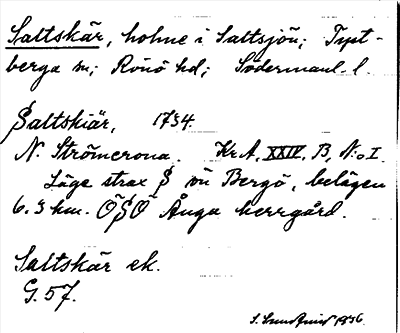 Saltskär, holme i Saltsjön; Tyst-
berga sn; Rönö hd; Södermanl. l.
Saltskiär, 1734
N. Strömcrona. Kr A, XXIV, B, N:o I.
Läge strax S om Bergö, belägen
6.3 km. ÖSÖ Ånga herrgård.
Saltskär ek.
G. 57.
S. 1936.